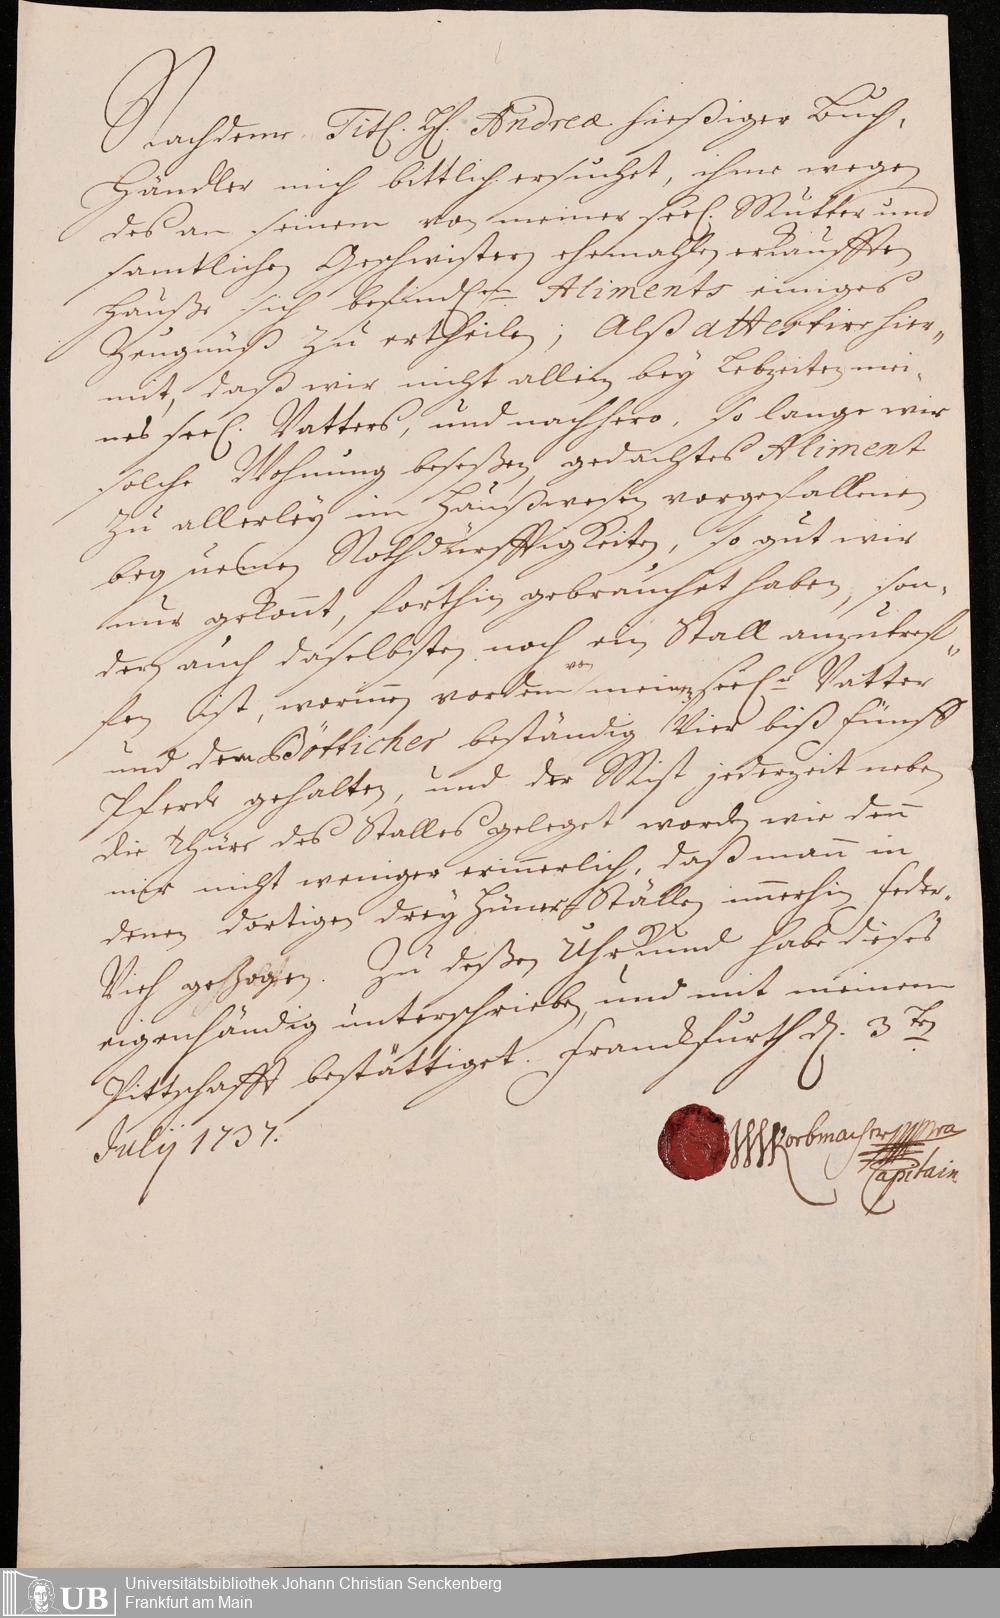 Nachdeme Titl. H. Andreæ hießiger Buch-
Händler mich bittlich ersuchet, ihme wegen
des an seinem von meiner seel. Mutter und
samtlichen Geschwistern ehemahlen erkaufften
Hauße sich befindl. Aliments einiges
Zeugnüß zu ertheilen; Alß attestire hier„
mit, daß wir nicht allein bey Lebzeiten mei-
nes seel. Vatters, und nachhero, so lange wir
solche Wohnung beseßen, gedachtes Aliment
zu allerley im Haußwesen vorgefallenen
bequemen Nothdürfftigkeiten, so gut wir
nur gekont, forthin gebrauchet haben, son-
dern auch daselbsten noch ein Stall anzutref„
fen ist, worinnen vordem von meinem seel. Vatter
und dem Bötticher beständig Vier biß fünff
Pferde gehalten, und der Mist jederzeit neben
die Thüre des Stalles geleget worden wie den
mir nicht weniger erinerlich, daß man in
denen dortigen drey Hüner-Ställen imerhin feder-
Vieh gezogen. Zu deßen Uhrkund habe dieses
eigenhändig unterschrieben, und mit meinem
Pittschafft bestättiget. Franckfurth d. 3ten
July 1737.
Korbmacher mpra
Capitain
Universitätsbibliothek Johann Christian Senckenberg
Frankfurt am Main
UB